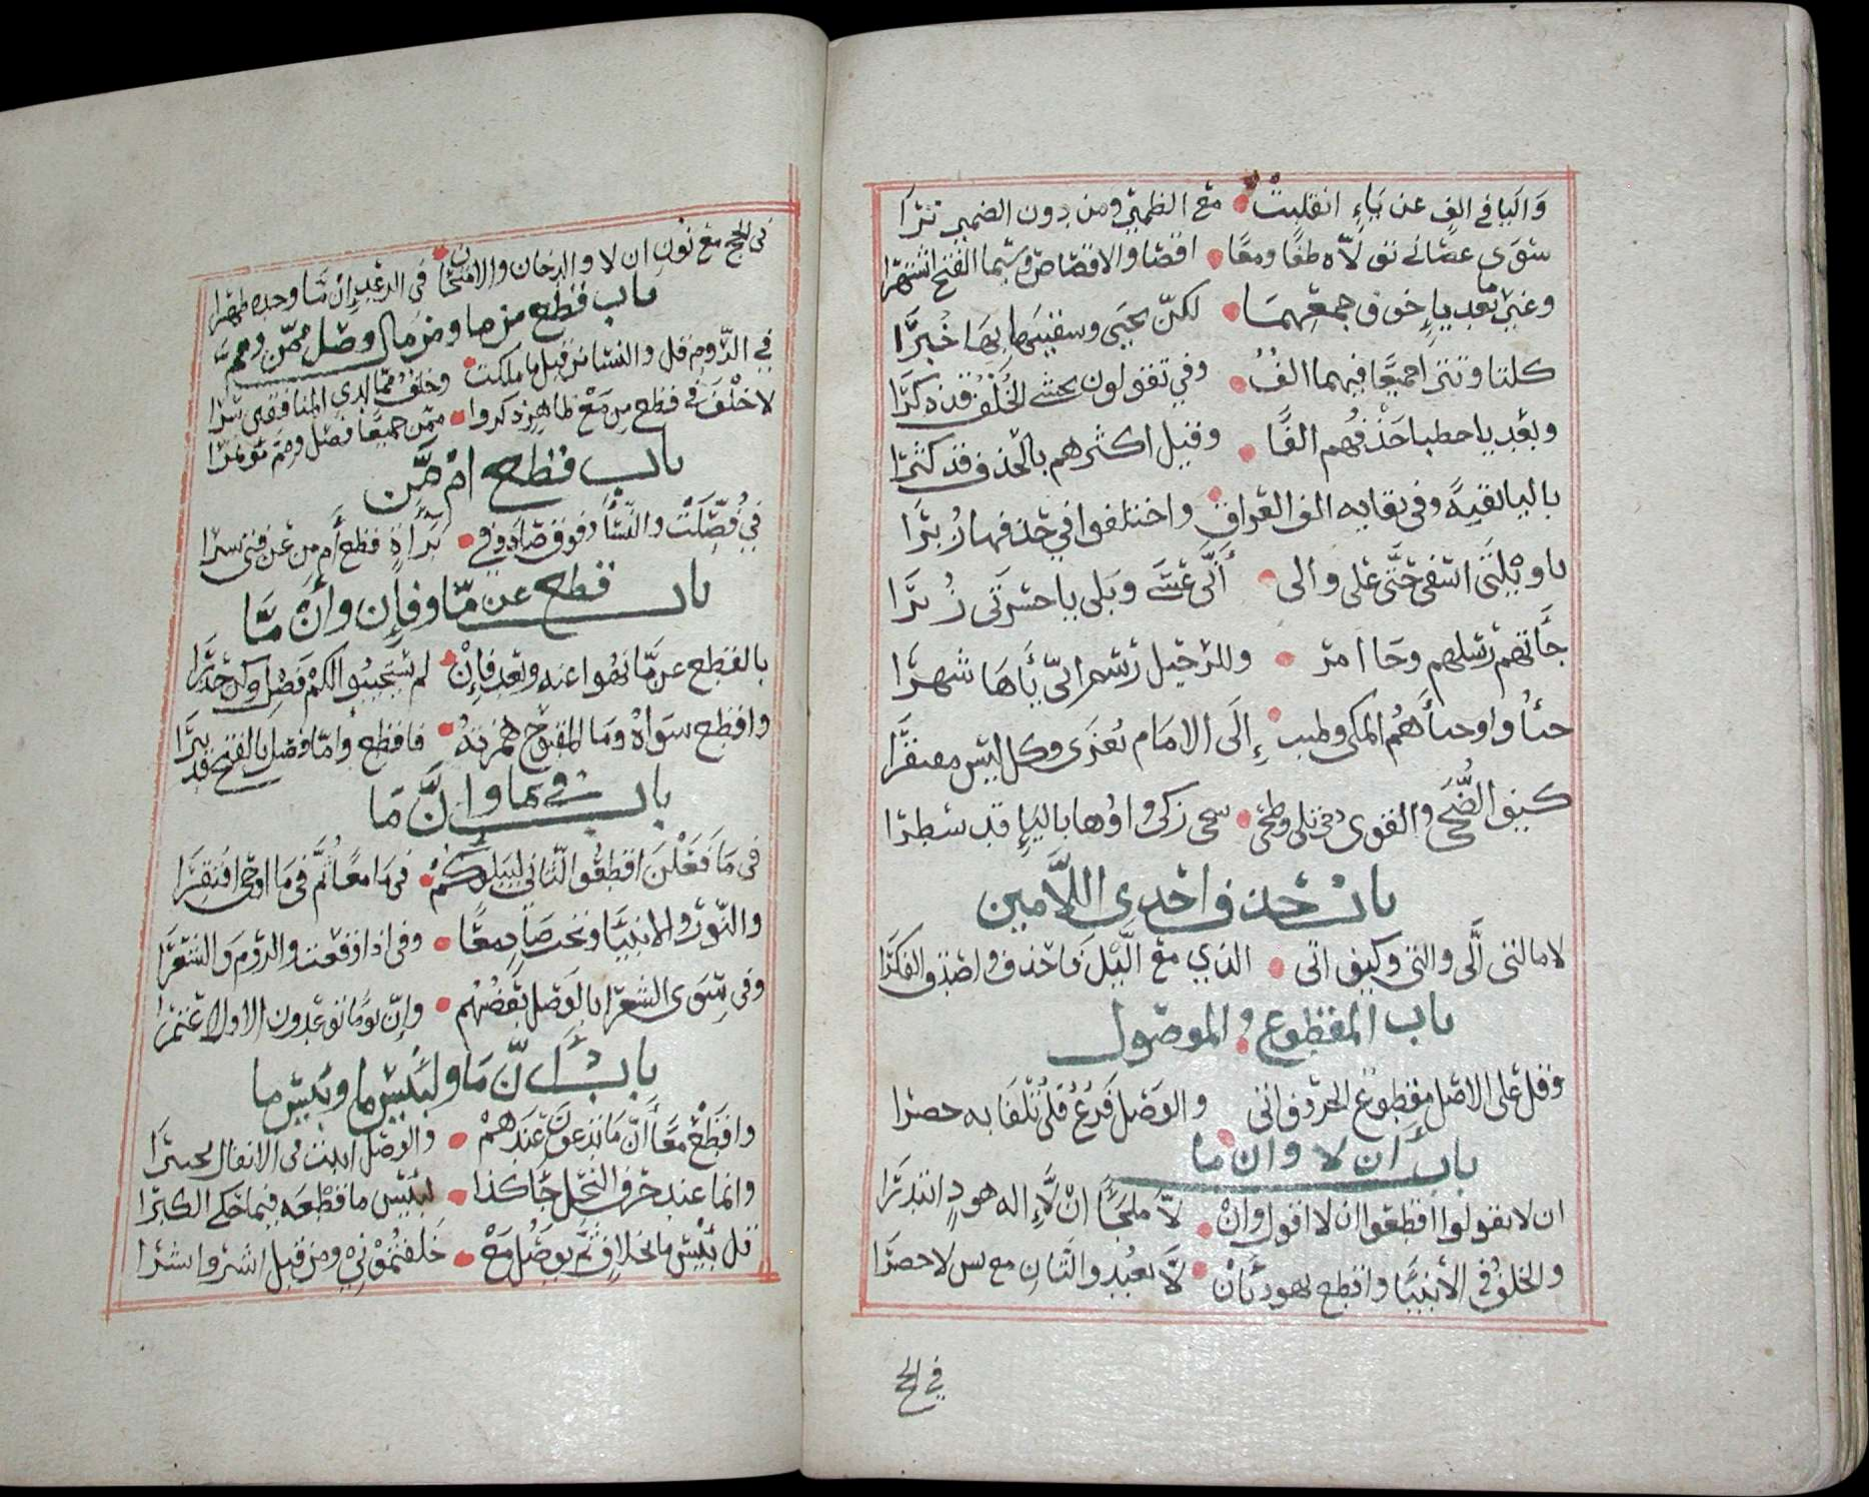 واليا في الف عن ياء انقلبت مع الظمير ومن دون الضمير ترا
سوى عصاني تولاه طغا ومعا اقصا والاقصا وسيما الفتح اشتهرا
وغير ما بعد ياء خوف جمعهما لكن يحيى وسقيها بها خبرا
كلتا وتترا جميعا فيهما الف وفي تقولون نخشى الخلف قد ذكرا
وبعد يا خطيا حذفهم الفا وقبل اكثرهم بالحذف قد كثرا
باليا تقية وفي تقاته الف العراق واختلفوا في حذفها زبرا
يا ويلتى اسفى حتى على والى انى عسى وبلى يا حسرتى زبرا
جاتهم رسلهم وجا امر وللرجيل رسم ابي ياها شهرا
جاؤا وجاءهم المكي إلى الامام تعزى وكل ليس مقتفرا
كيف الضحى والقوى دحى تلى وطحى سجى زكى واوها باليا قد سطرا
باب حذف احدى اللامين
لام التى الى والتى وكيف اتى الذي مع اليل فاحذف واصدق الفكرا
باب المقطوع والموصول
وقل على الاصل مقطوع الحروف اتى والوصل فرع فلا تلفا به حصرا
باب أن لا وان ما
ان لا يقولوا اقطعوا ان لا اقول وان لا ملجأ ان لا إله هود ابتدرا
والخلف في الأنبيا واقطع بهود بأن لا تعبدوا الثان مع يس لا حصرا
في الحج
في الحج مع نون ان لا والدخان والامتحان في الرعد إن ما وحده ظهرا
باب قطع من ما ومن مال ووصل ممن ومم
في الروم قل والنسا من قبل ما ملكت وخلف مما لدى المنافقين سرا
لا خلف في قطع من مع ظاهر ذكروا ممن جميعا فصل ومم مؤتمرا
باب قطع ام من
في فصلت والنسا وفوق صاد وفي براءة قطع أم من عن فتى سبرا
باب قطع عن ما وفإن وأن ما
بالقطع عن ما نهوا عنه وبعد فإن لم يستجيبوا لكم فصل وكن حذرا
واقطع سواه وما المفتوح همزته فاقطع وأما فصل بالفتح قد نبرا
باب في ما وإن ما
في ما فعلن اقطعوا الثاني ليبلوكم في ما معا ثم في ما اوحى اقتفرا
والنور والانبيا وتحت صاد معا وفي اذا وقعت والروم والشعرا
وفي سوى الشعرا بالوصل بعضهم وإن ما توعدون الاولا عتمرا
باب أن ما ولبئس ما وبئس ما
واقطع معا أن ما يدعون عندهم والوصل اثبت في الانفال محتبرا
وانما عند حرف النحل جا كذا لبئس ما قطعه فيما حكى الكبرا
قل بئس ما بخلاف ثم يوصل مع خلفتموني ومن قبل اشتروا نشرا